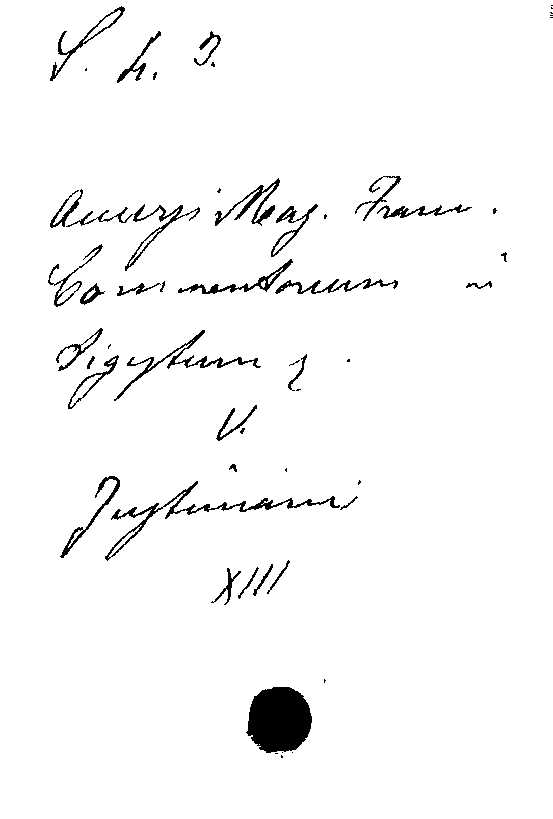 S. h. 3.
Accursi Mag. Franc.
Commentarium in
Digestum
V.
Justiniani
XIII